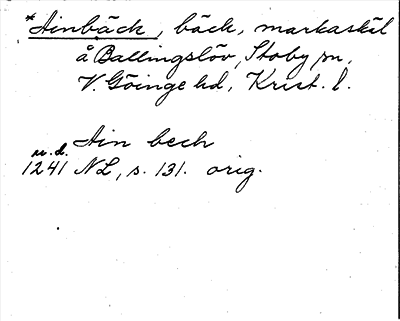 *Hinbäck, bäck, markaskäl
å Ballingslöv, Stoby sn,
V. Göinge hd, Krist. l.
Hin bech
u. d.
1241 NL, s. 131. orig.